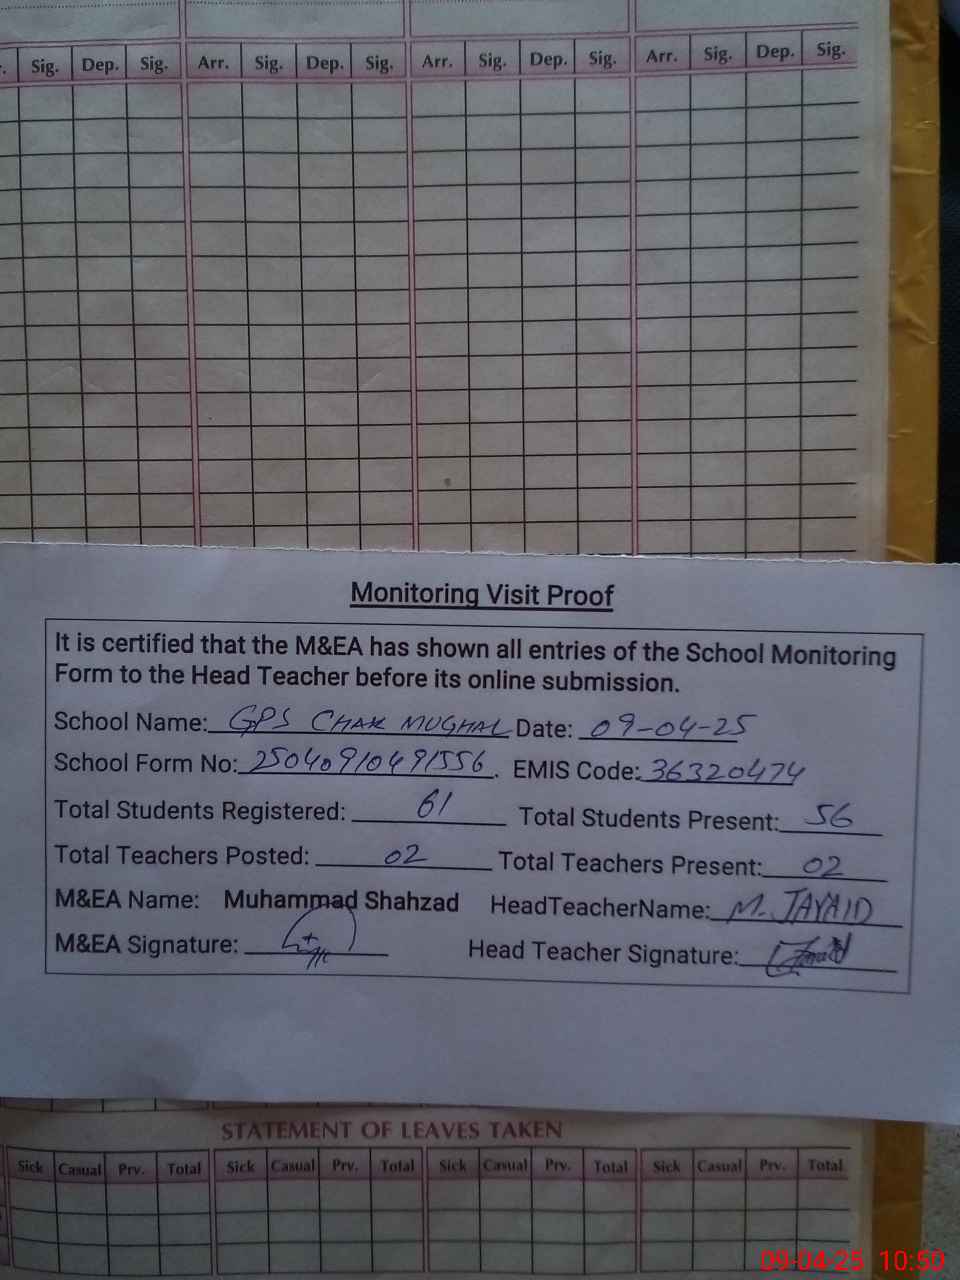 Sig. Dep. Sig. Arr. Sig. Dep. Sig. Arr. Sig. Dep. Sig. Arr. Sig. Dep. Sig.
Monitoring Visit Proof
It is certified that the M&EA has shown all entries of the School Monitoring
Form to the Head Teacher before its online submission.
School Name: GPS CHAK MUGHAL Date: 09-04-25
School Form No: 25040910491556. EMIS Code: 36320474
Total Students Registered: 61 Total Students Present: 56
Total Teachers Posted: 02 Total Teachers Present: 02
M&EA Name: Muhammad Shahzad HeadTeacherName: M. JAVAID
M&EA Signature: Head Teacher Signature:
STATEMENT OF LEAVES TAKEN
Sick Casual Prv. Total Sick Casual Prv. Total Sick Casual Prv. Total Sick Casual Prv. Total
09-04-25 10:50